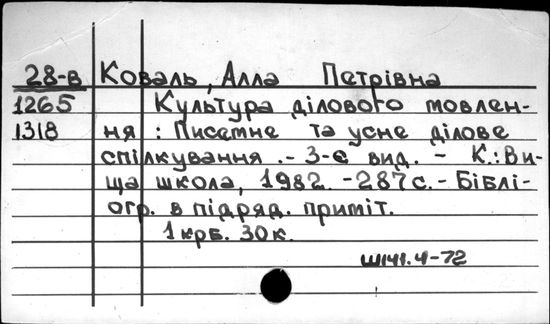 28-в Коваль, Алла Петрівна
1265 Культура ділового мовлен-
1318 ня : Писемне та усне ділове
спілкування .- 3-є вид. - К.: Ви-
ща школа, 1982. -287с.- Біблі-
огр. в підряд. приміт.
1крб. 30к.
Ш141.4-72